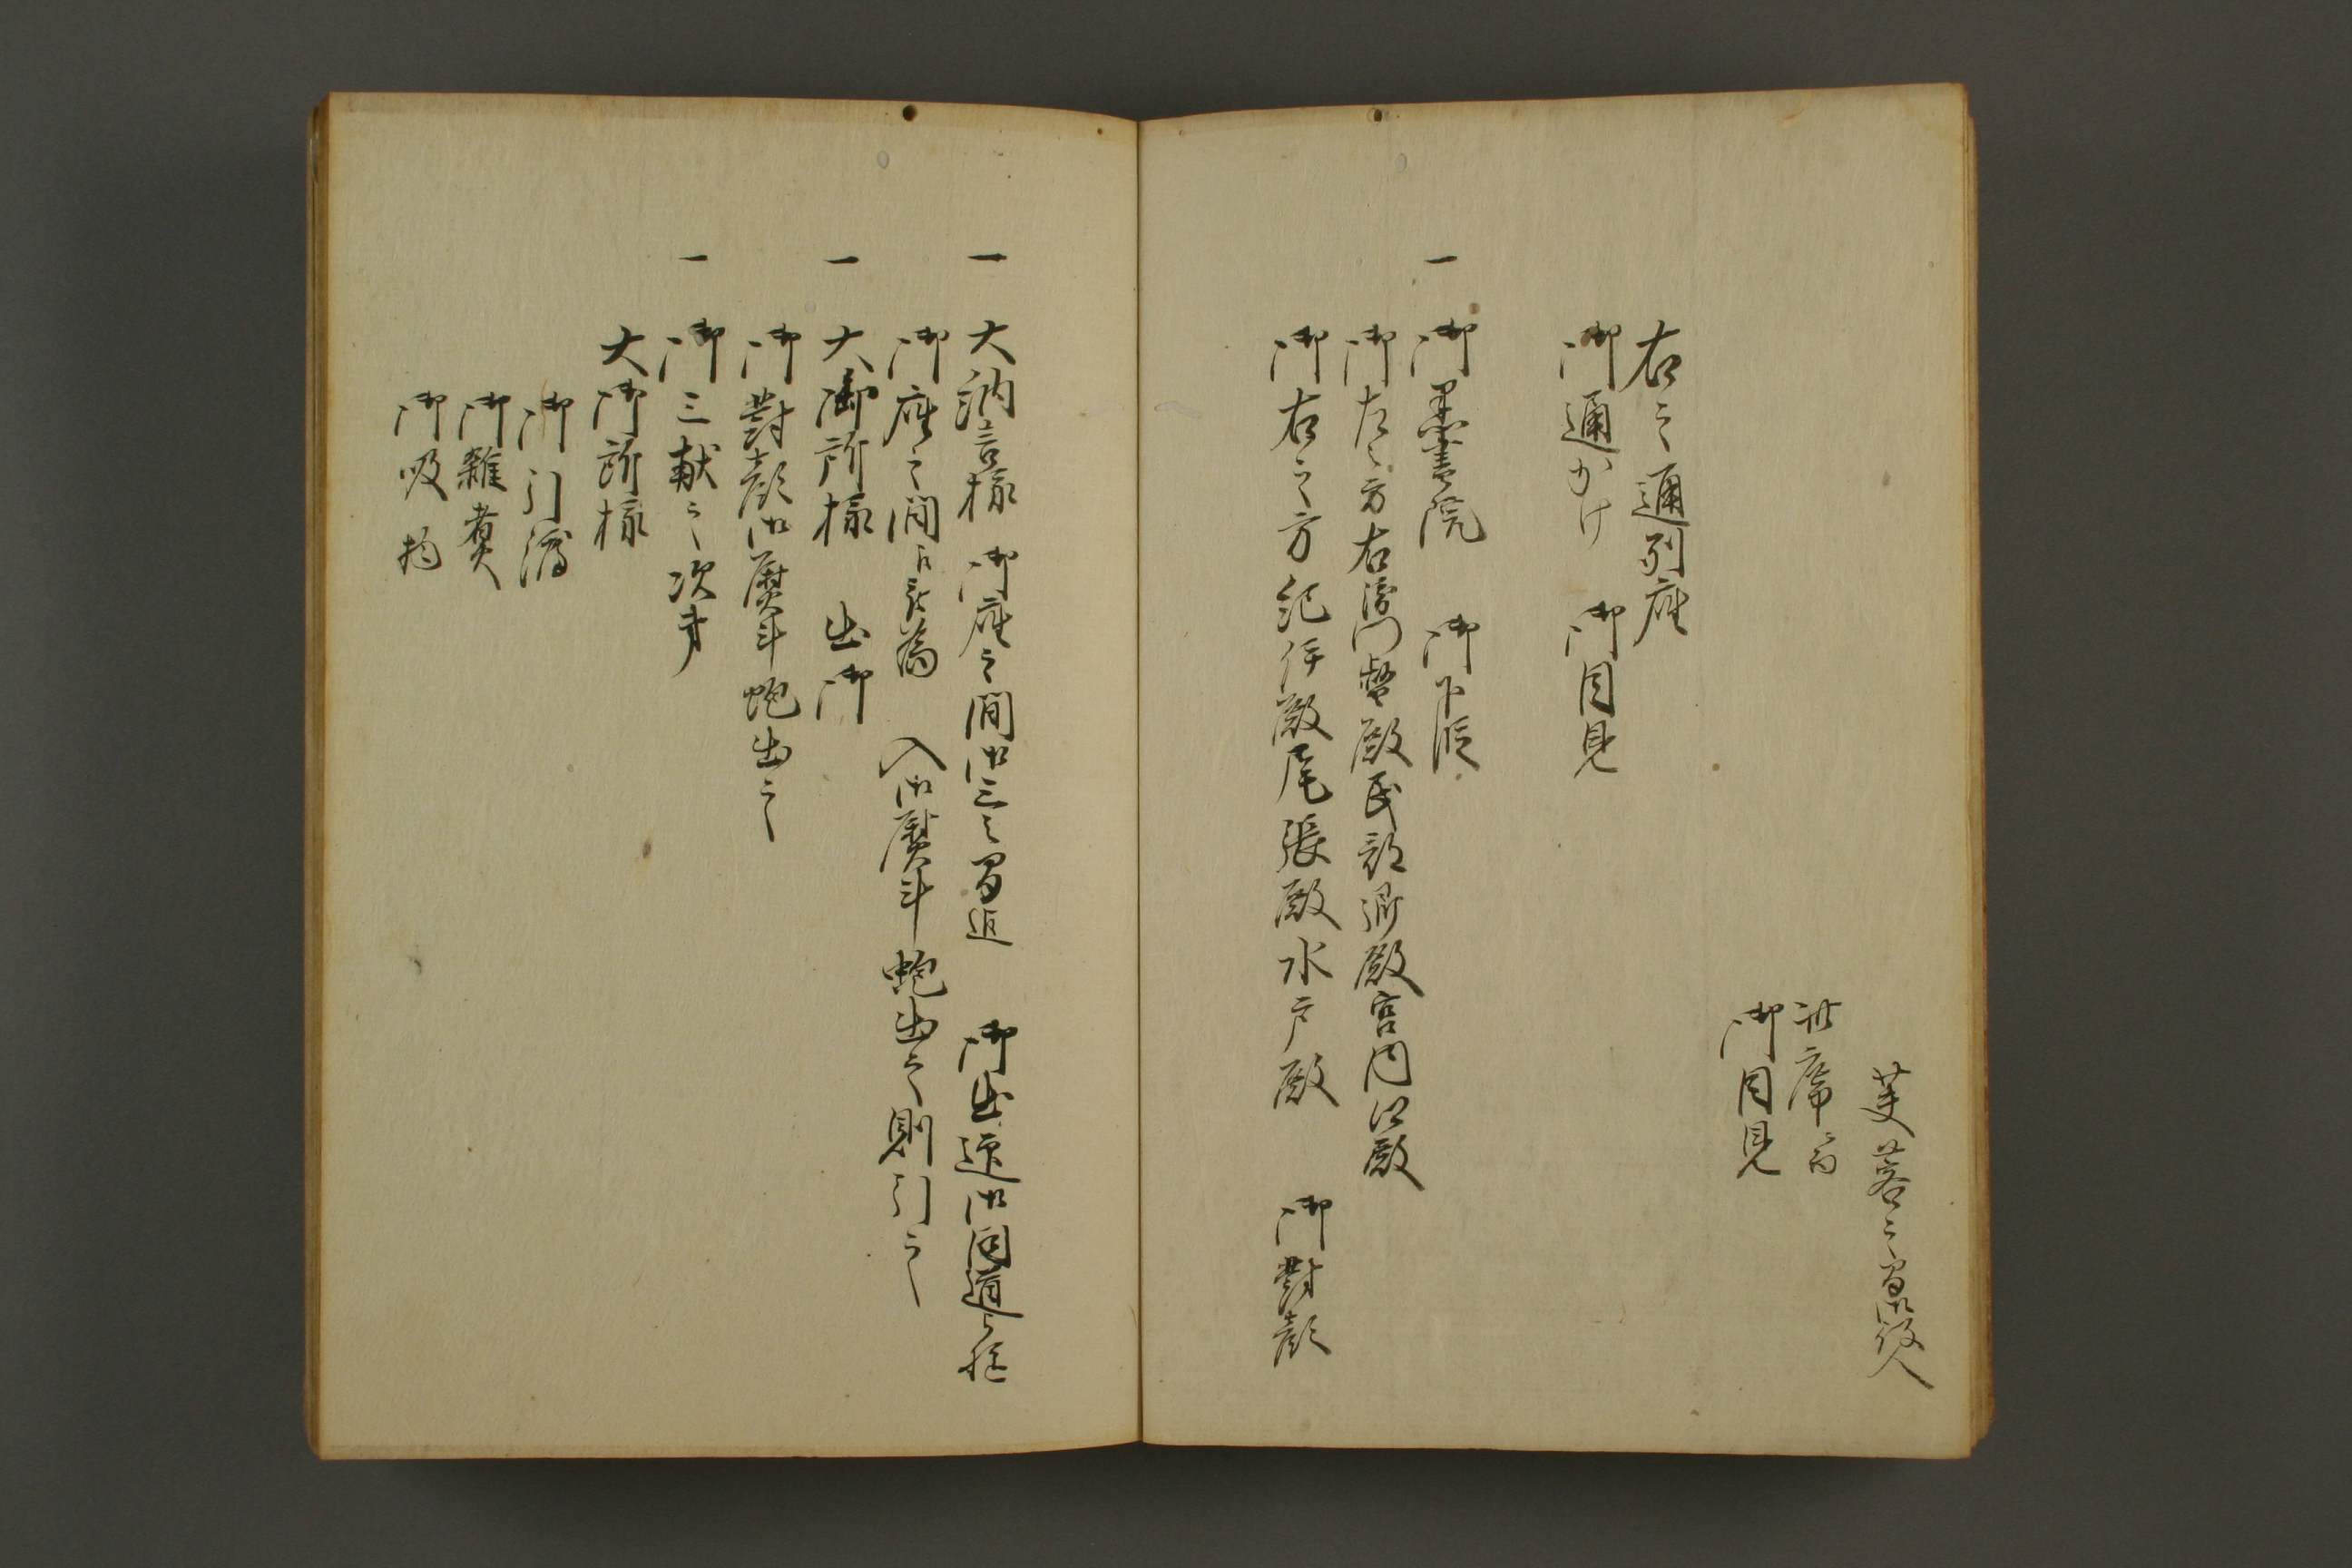 芙蓉之間御役人
此席ニ而
御目見
右之通列座
御通かけ 御目見
一 御黒書院 御下段
御左之方右衛門督殿民部卿殿宮内卿殿
御右之方紀伊殿尾張殿水戸殿 御對顔
一 大納言様 御座之間御三之間迄 御出迎御同道ニ而
御座之間 入御熨斗蚫出之則引之
一 大御所様 出御
御對顔御熨斗蚫出之
一 御三献之次第
大御所様
御引渡
御雜煮
御吸物